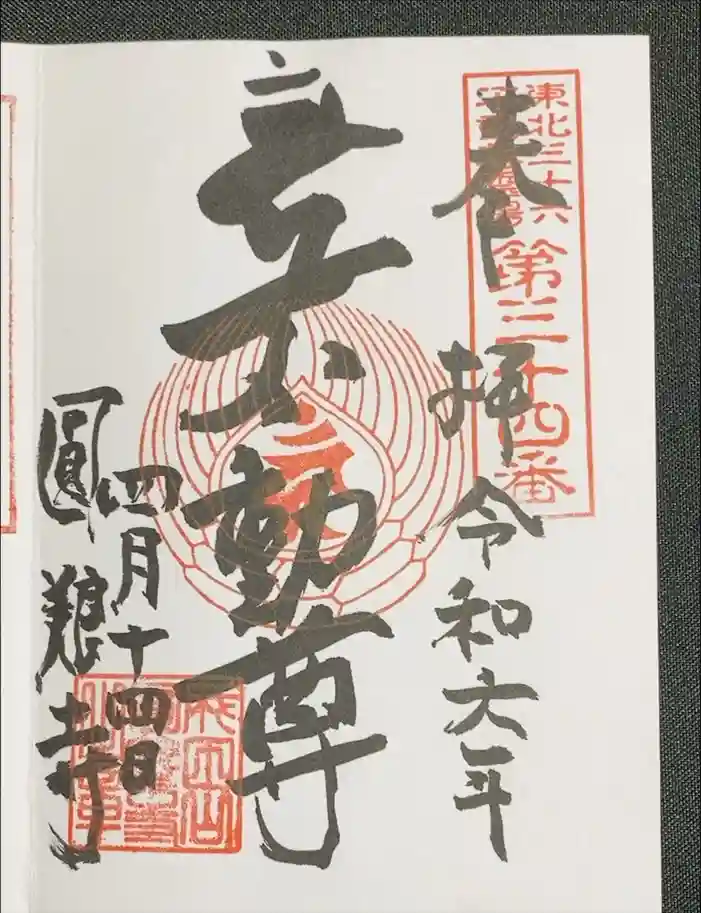 東北三十六
不動尊霊場
第三十四番
奉拝 令和六年
不動尊
四月十四日
圓養寺